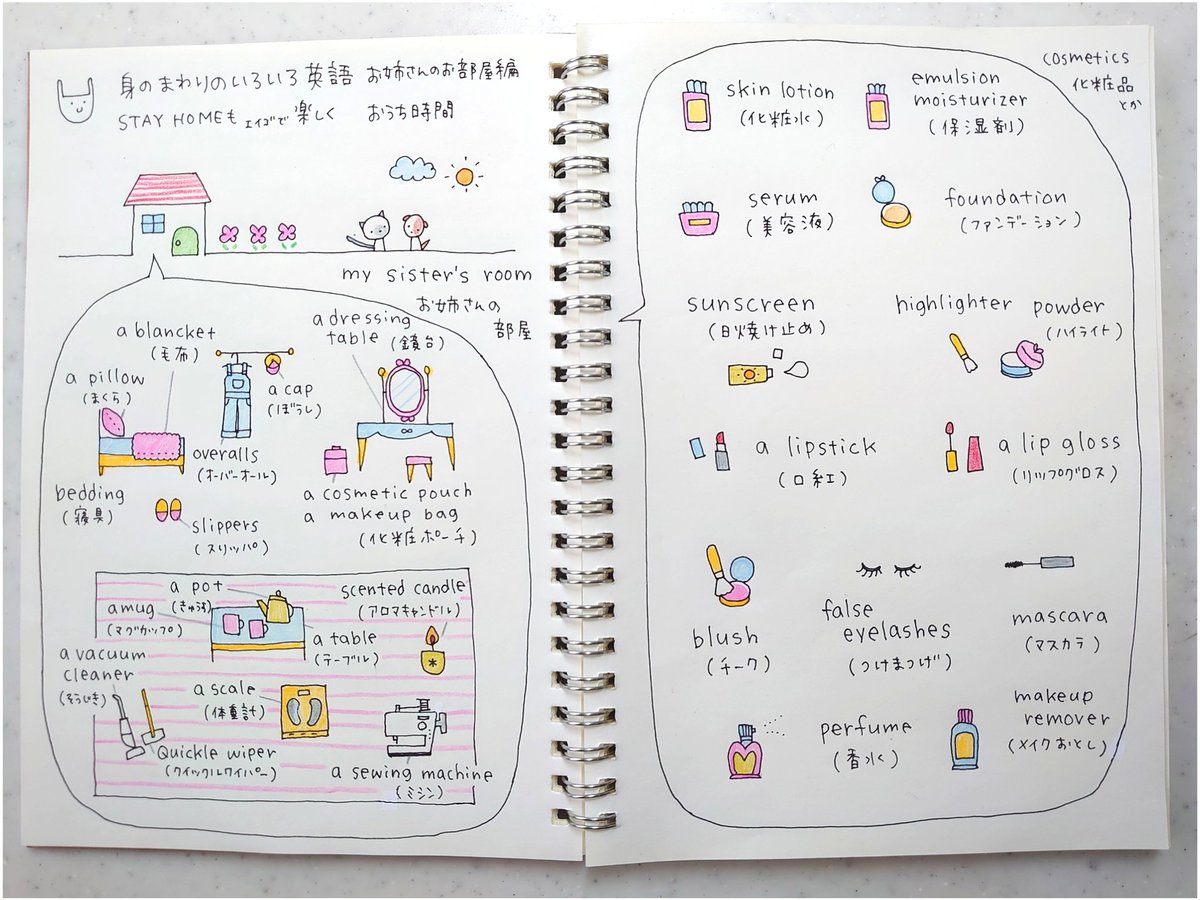 身のまわりのいろいろ英語 お姉さんのお部屋編
STAY HOMEも エイゴで 楽しく おうち時間
my sister's room
お姉さんの
部屋
a blancket
(毛布)
a pillow
(まくら)
a cap
(ぼうし)
overalls
(オーバーオール)
a dressing
table (鏡台)
bedding
(寝具)
slippers
(スリッパ)
a cosmetic pouch
a makeup bag
(化粧ポーチ)
a pot
(きゅうす)
a mug
(マグカップ)
scented candle
(アロマキャンドル)
a table
(テーブル)
a vacuum
cleaner
(そうじき)
a scale
(体重計)
Quickle wiper
(クイックルワイパー)
a sewing machine
(ミシン)
cosmetics
化粧品
とか
skin lotion
(化粧水)
emulsion
moisturizer
(保湿剤)
serum
(美容液)
foundation
(ファンデーション)
sunscreen
(日焼け止め)
highlighter powder
(ハイライト)
a lipstick
(口紅)
a lip gloss
(リップグロス)
blush
(チーク)
false
eyelashes
(つけまつげ)
mascara
(マスカラ)
perfume
(香水)
makeup
remover
(メイクおとし)